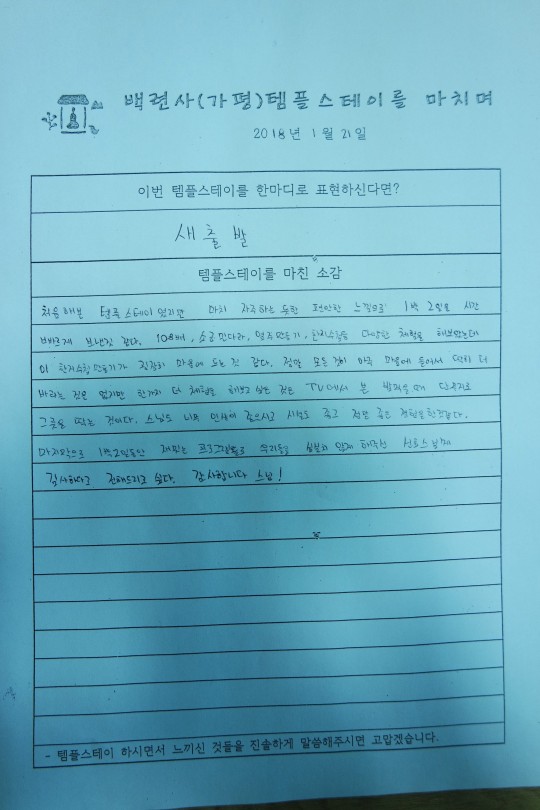 백련사(가평)템플스테이를 마치며
2018년 1월 21일
이번 템플스테이를 한마디로 표현하신다면?
새출발
템플스테이를 마친 소감
처음해본 템플스테이 였지만 마치 자주하는 듯한 편안한 느낌으로 1박 2일을 시간
빠르게 보낸것 같다. 108배, 소금만다라, 염주만들기, 등 다양한 체험을 해보았는데
이 만들기가 굉장히 마음에 드는것 같다. 정말 모든것이 아주 마음에 들어서 딱히 더
바라는 것은 없지만 한가지 더 체험을 해보고 싶은 것은 TV에서 본 밥먹을때 단무지로
그릇을 닦는 것이다. 스님도 너무 친절하시고 시설도 좋고 정말 좋은 경험을 한것같다.
마지막으로 1박2일동안 재밌는 프로그램들로 우리들을 심심치 않게 해주신 스님께
감사하다고 전해드리고 싶다. 감사합니다 스님!
- 템플스테이 하시면서 느끼신 것들을 진솔하게 말씀해주시면 고맙겠습니다.